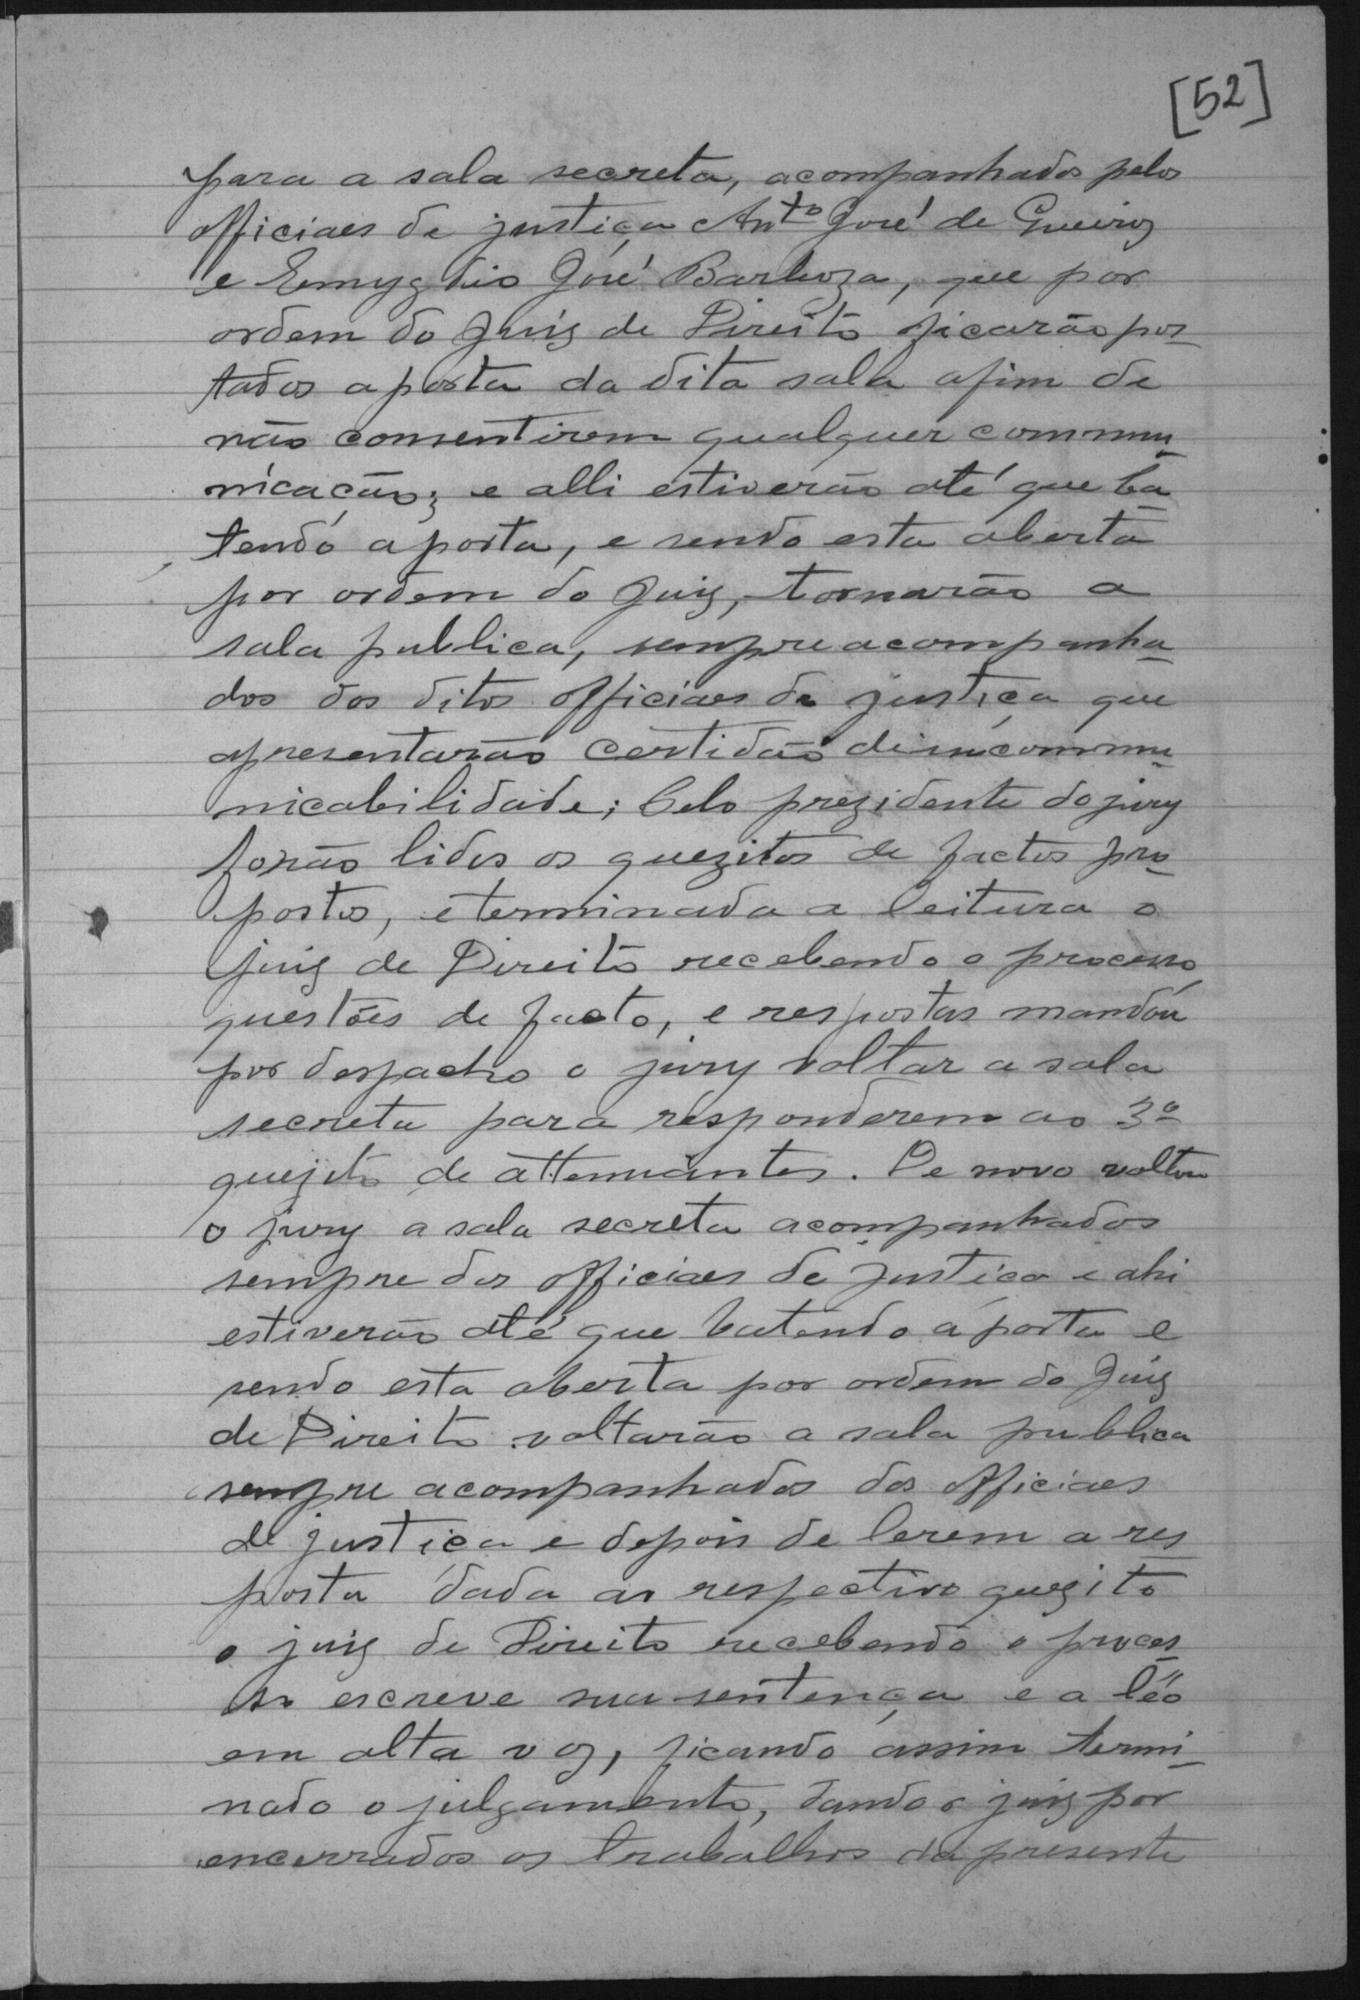 [52]
para a sala secreta, acompanhados pelos
officiaes de justiça Ant.to José de Queiroz
e Emygdio José Barboza, que por
ordem do Juiz de Direito ficarão pos-
tados a porta da dita sala afim de
não consentirem qualquer commu-
nicação; e alli estiverão até que ba-
tendo a porta, e sendo esta aberta
por ordem do Juiz, tornarão a
sala publica, sempre acompanha-
dos dos ditos officiaes de justiça que
apresentarão certidão de incommu-
nicabilidade; Pelo prezidente do jury
forão lidos os quezitos de factos pro-
postos, e terminada a leitura o
juiz de Direito recebendo o processo
questões de facto, e respostas mandou
por despacho o jury voltar a sala
secreta para responderem ao 3º
quezito de attenuantes. De novo voltou
o jury a sala secreta acompanhados
sempre dos officiaes de justiça e ahi
estiverão até que batendo a porta e
sendo esta aberta por ordem do Juiz
de Direito voltarão a sala publica
sempre acompanhados dos officiaes
de justiça e depois de lerem a res
posta dada ao respectivo quezito
o juiz de Direito recebendo o proces-
so escreve sua sentença e a lêo
em alta voz, ficando assim termi-
nado o julgamento, dando o juiz por
encerrados os trabalhos da presente